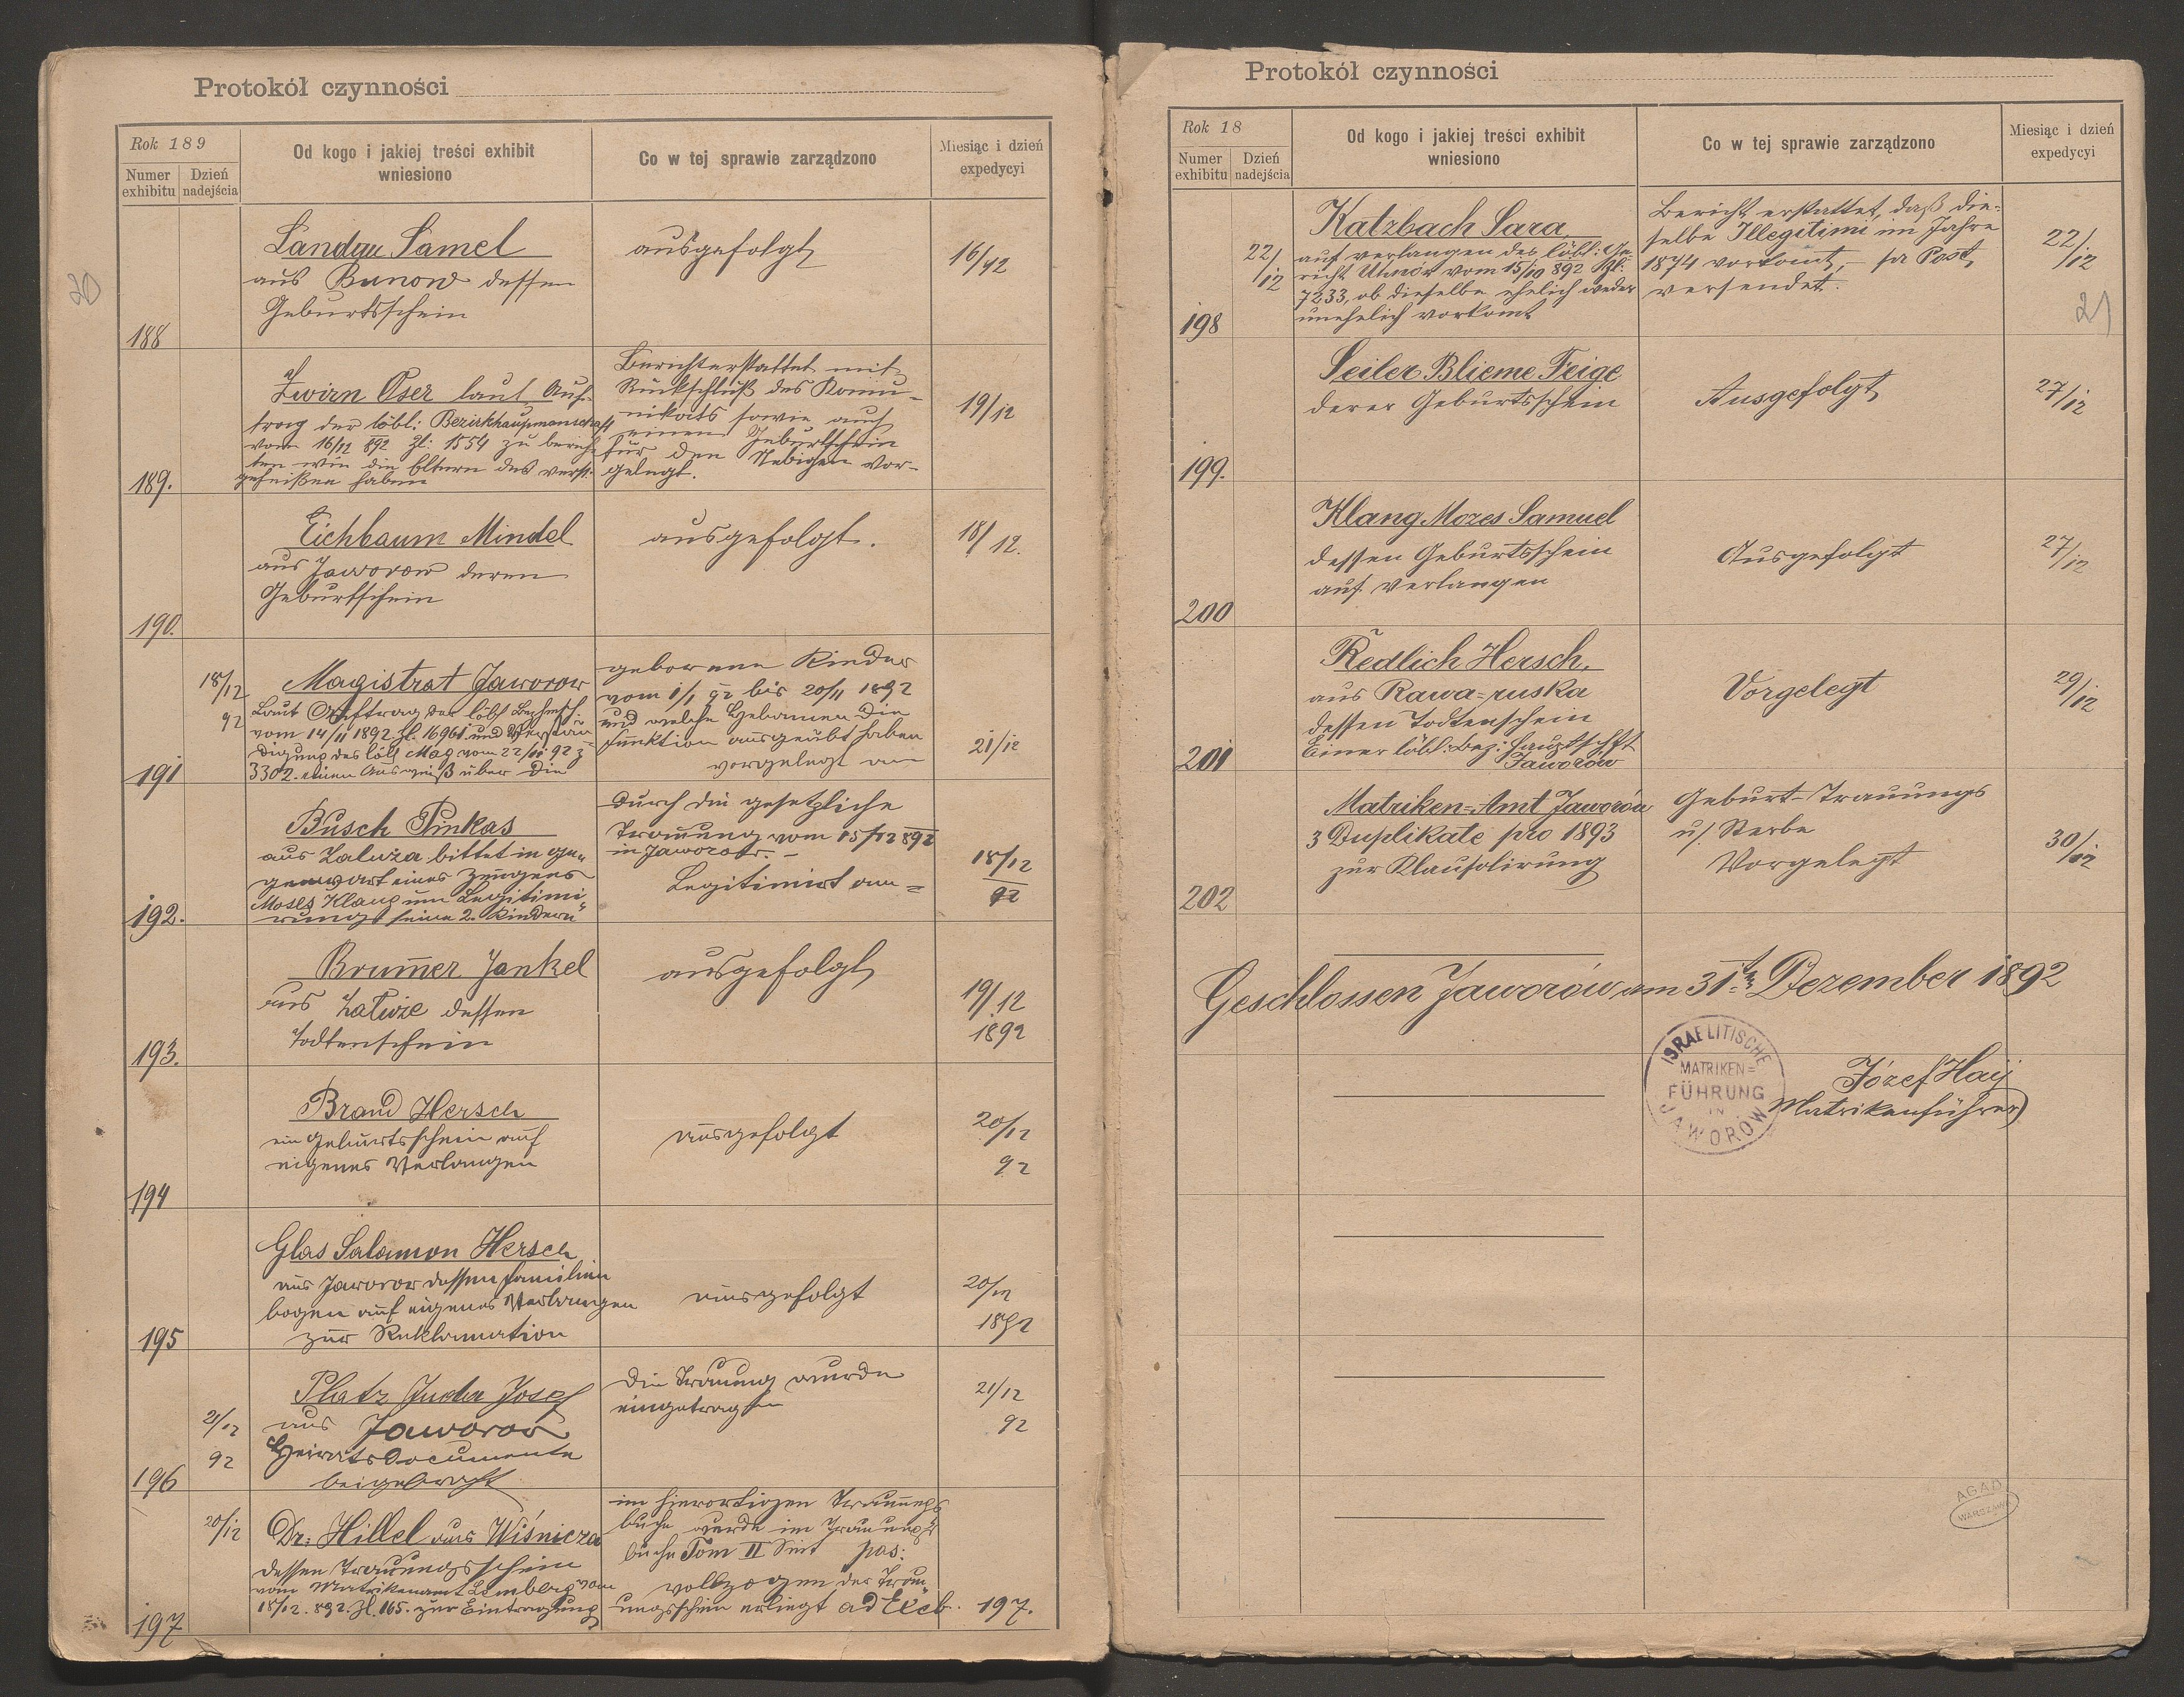 Protokół czynności
Rok 189
Numer exhibitu
Dzień nadejścia
Od kogo i jakiej treści exhibit wniesiono
Co w tej sprawie zarządzono
Miesiąc i dzień expedycyi
188
Landau Samel
aus Bunow dessen
Geburtsschein
ausgefolgt
16/12
189.
Zwirn Oser laut Auf-
trag der löbl: Bezirkhauptmanschaft
vom 16/12 892 Zl: 1554 zu berich-
ten wie die Eltern des verst:
geheißen haben
Bericht erstattet mit
Rückschluß des Komu-
nikats sowie auch
einen Geburtschein
für den Stebigen vor-
gelegt.
19/12
190.
Eichbaum Mindel
aus Jaworow deren
Geburtschein
ausgefolgt.
18/12.
191
18/12
92
Magistrat Jaworow
Laut Auftrag der löbl
vom 14/11 1892 Zl. 16961 und Verstän-
digung des löbl Mag vom 22/11 92 Z
3302. einen Ausweiß über die
geborene Kinder
vom 1/1 92 bis 20/11 1892
und welche Hebamen die
Funktion ausgeübt haben
vorgelegt am
21/12
192.
Busch Pinkas
aus Zaluża bittet in ge-
genwart eines Zeugens
Moses Klang um Legitimi-
rung seine 2. Kindern
durch die gesetzliche
Trauung vom 15/12 892
in Jaworow. -
Legitimirt am =
18/12
92
193.
Brumer Jankel
aus Zaluże dessen
Todtenschein
ausgefolgt
19/12
1892
194
Brand Hersch
ein Geburtsschein auf
eigenes Verlangen
ausgefolgt
20/12
92
195
Glas Salamon Hersch
aus Jaworow dessen Familien
bogen auf eigenes Verlangen
zur Reklamation
ausgefolgt
20/12
1892
196
21/12
92
Platz Juda Josef
aus Jaworow
Heirats Documente
beigebracht
die Trauung wurde
eingetragen
21/12
92
197
20/12
Dr: Hillel aus Wiśnicza
dessen Trauungsschein
vom Matrikenamt Lemberg vom
18/12. 892. Zl. 165. zur Eintragung
im hierortigen Trauungs
buche wurde im Trauungs
buche Tom II Seit pas:
vollzogen der Trau-
ungsschein erliegt ad Excb. 197.
Protokół czynności
Rok 18
Numer exhibitu
Dzień nadejścia
Od kogo i jakiej treści exhibit wniesiono
Co w tej sprawie zarządzono
Miesiąc i dzień expedycyi
198
22/12
Katzbach Sara,
auf verlangen des löbl: Ge-
richt Uhnów vom 15/10 892 Zl:
7233, ob dieselbe ehelich weder
unehelich vorkomt
Bericht erstattet, daß die-
selbe Illegitimi im Jahre
1874 vorkomt, - pr Post,
versendet.
22/12
21
199.
Seiler Blieme Feige
derer Geburtsschein
Ausgefolgt
27/12
200
Klang Mozes Samuel
dessen Geburtsschein
auf verlangen
Ausgefolgt
27/12
201
Redlich Hersch,
aus Rawa-ruska
dessen Todtenschein
Einer löbl: Bez: Hauptschft
Jaworów
Vorgelegt
29/12
202
Matriken=Amt Jaworów
3 Duplikate pro 1893
zur Klausolirung
Geburt-Trauungs
u/. Sterbe
Vorgelegt
30/12
Geschlossen Jaworów am 31ten Dezember 1892
ISRAELITISCHE
MATRIKEN=
FÜHRUNG
IN
JAWORÓW
Józef Haij
Matrikenführer
AGAD
WARSZAWA